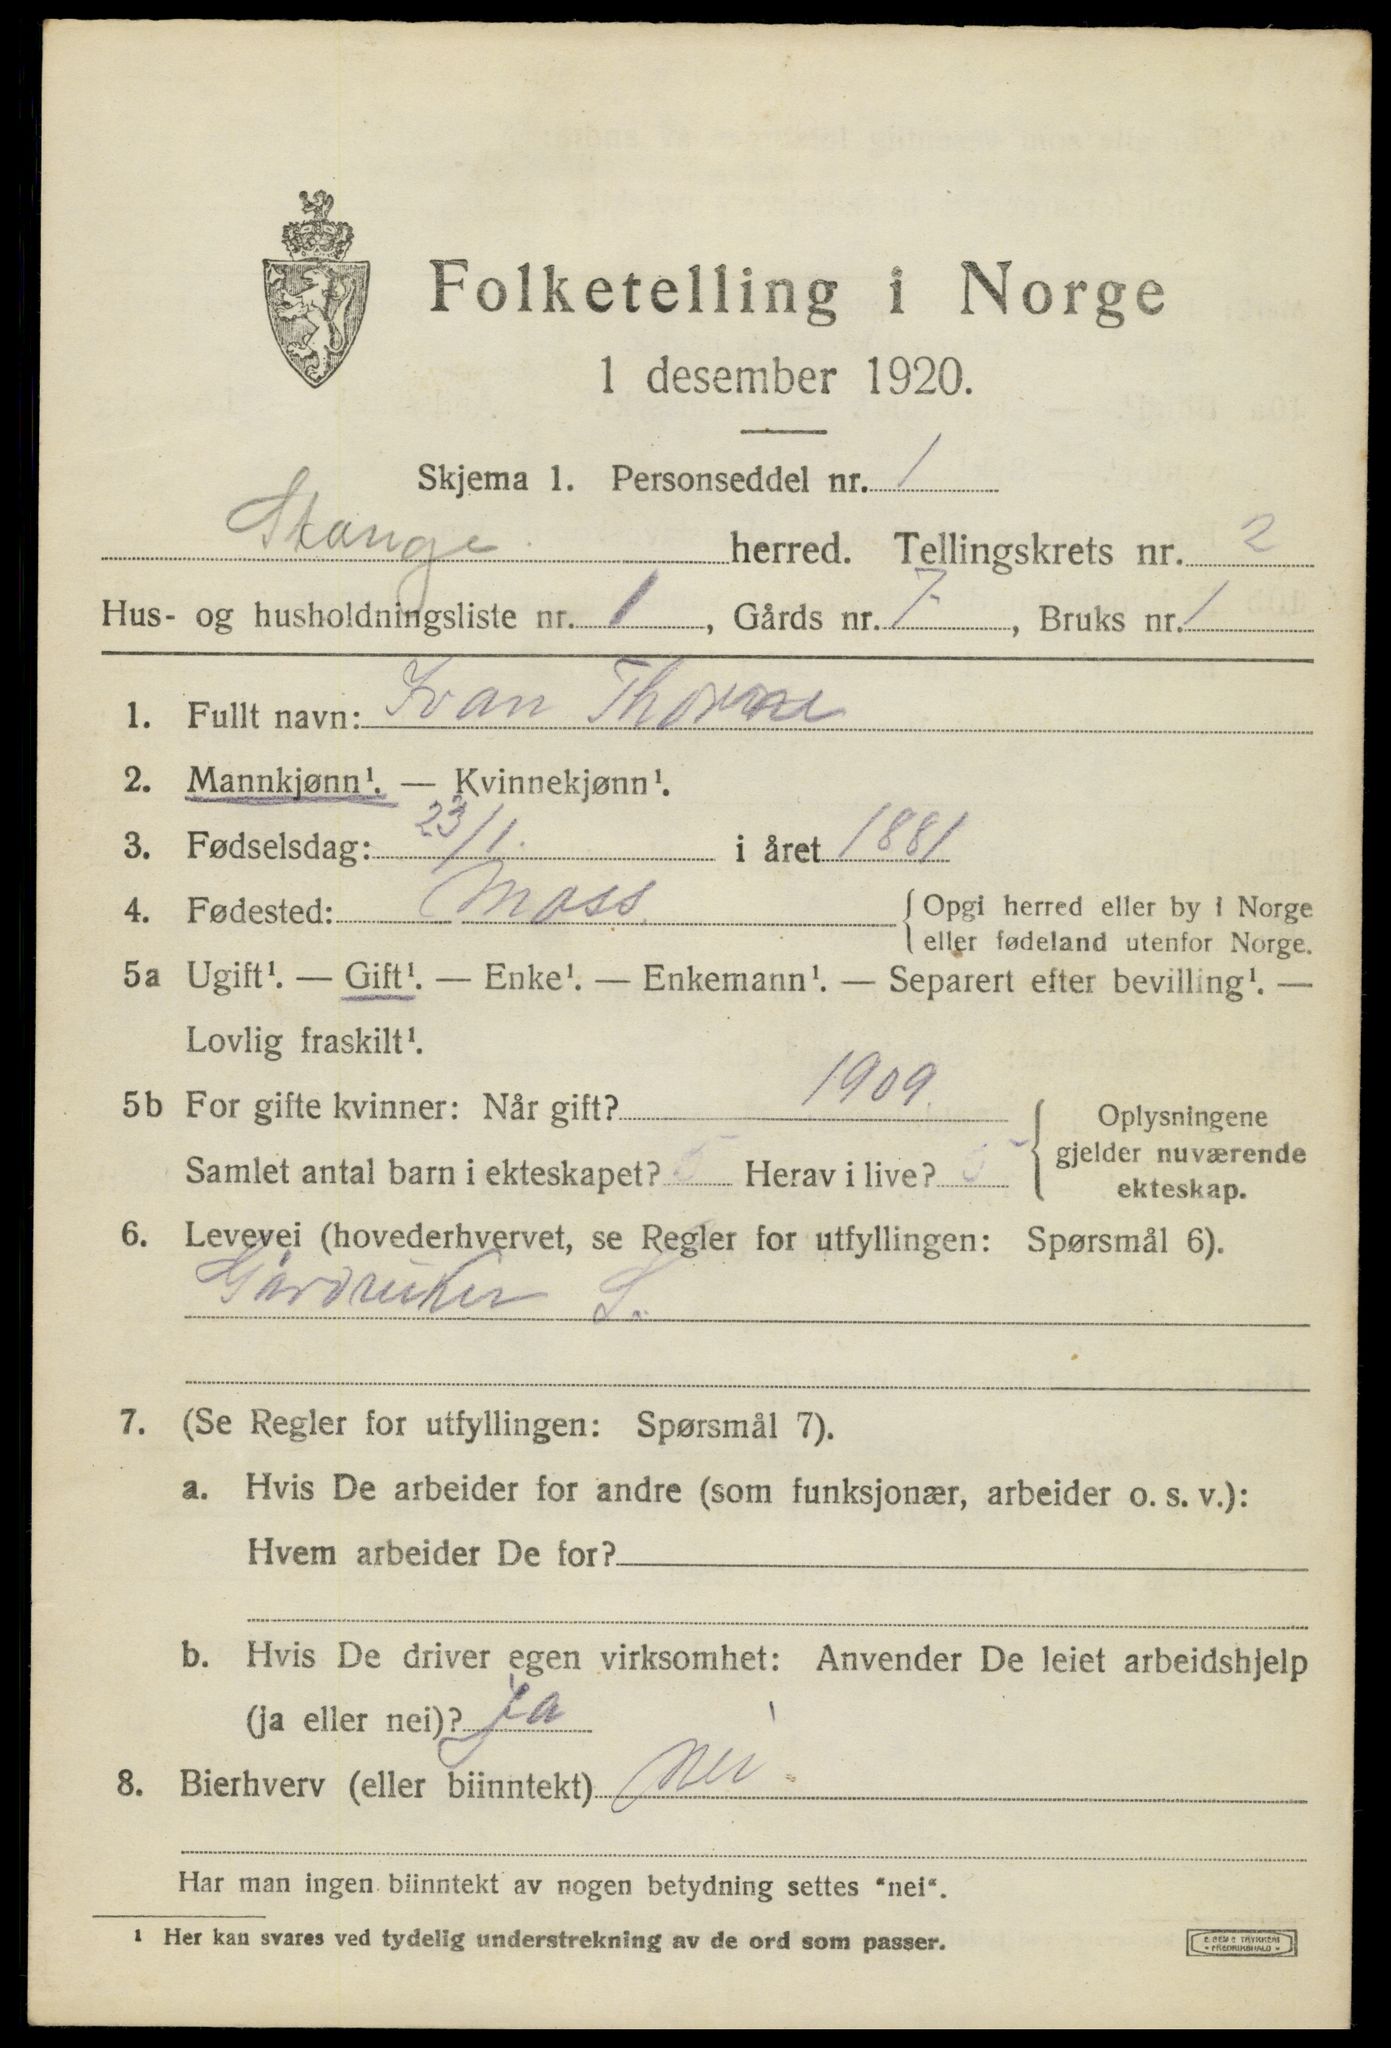 Folketelling i Norge
1 desember 1920.
Skjema 1. Personseddel nr. 1
Stange herred. Tellingskrets nr. 2
Hus- og husholdningsliste nr. 1, Gårds nr. 7, Bruks nr. 1
1. Fullt navn: Ivan Thorne
2. Mannkjønn¹. — Kvinnekjønn¹.
3. Fødselsdag: 23/1. i året 1881
4. Fødested: Moss. { Opgi herred eller by i Norge
eller fødeland utenfor Norge.
5a Ugift¹. — Gift¹. — Enke¹. — Enkemann¹. — Separert efter bevilling¹. —
Lovlig fraskilt¹.
5b For gifte kvinner: Når gift? 1909. { Oplysningene
gjelder nuværende
ekteskap.
Samlet antal barn i ekteskapet? 5 Herav i live? 5
6. Levevei (hovederhvervet, se Regler for utfyllingen: Spørsmål 6).
Gårdbruker S.
7. (Se Regler for utfyllingen: Spørsmål 7).
a. Hvis De arbeider for andre (som funksjonær, arbeider o. s. v.):
Hvem arbeider De for?
b. Hvis De driver egen virksomhet: Anvender De leiet arbeidshjelp
(ja eller nei)? Ja
8. Bierhverv (eller biinntekt) nei.
Har man ingen biinntekt av nogen betydning settes "nei".
¹ Her kan svares ved tydelig understrekning av de ord som passer.